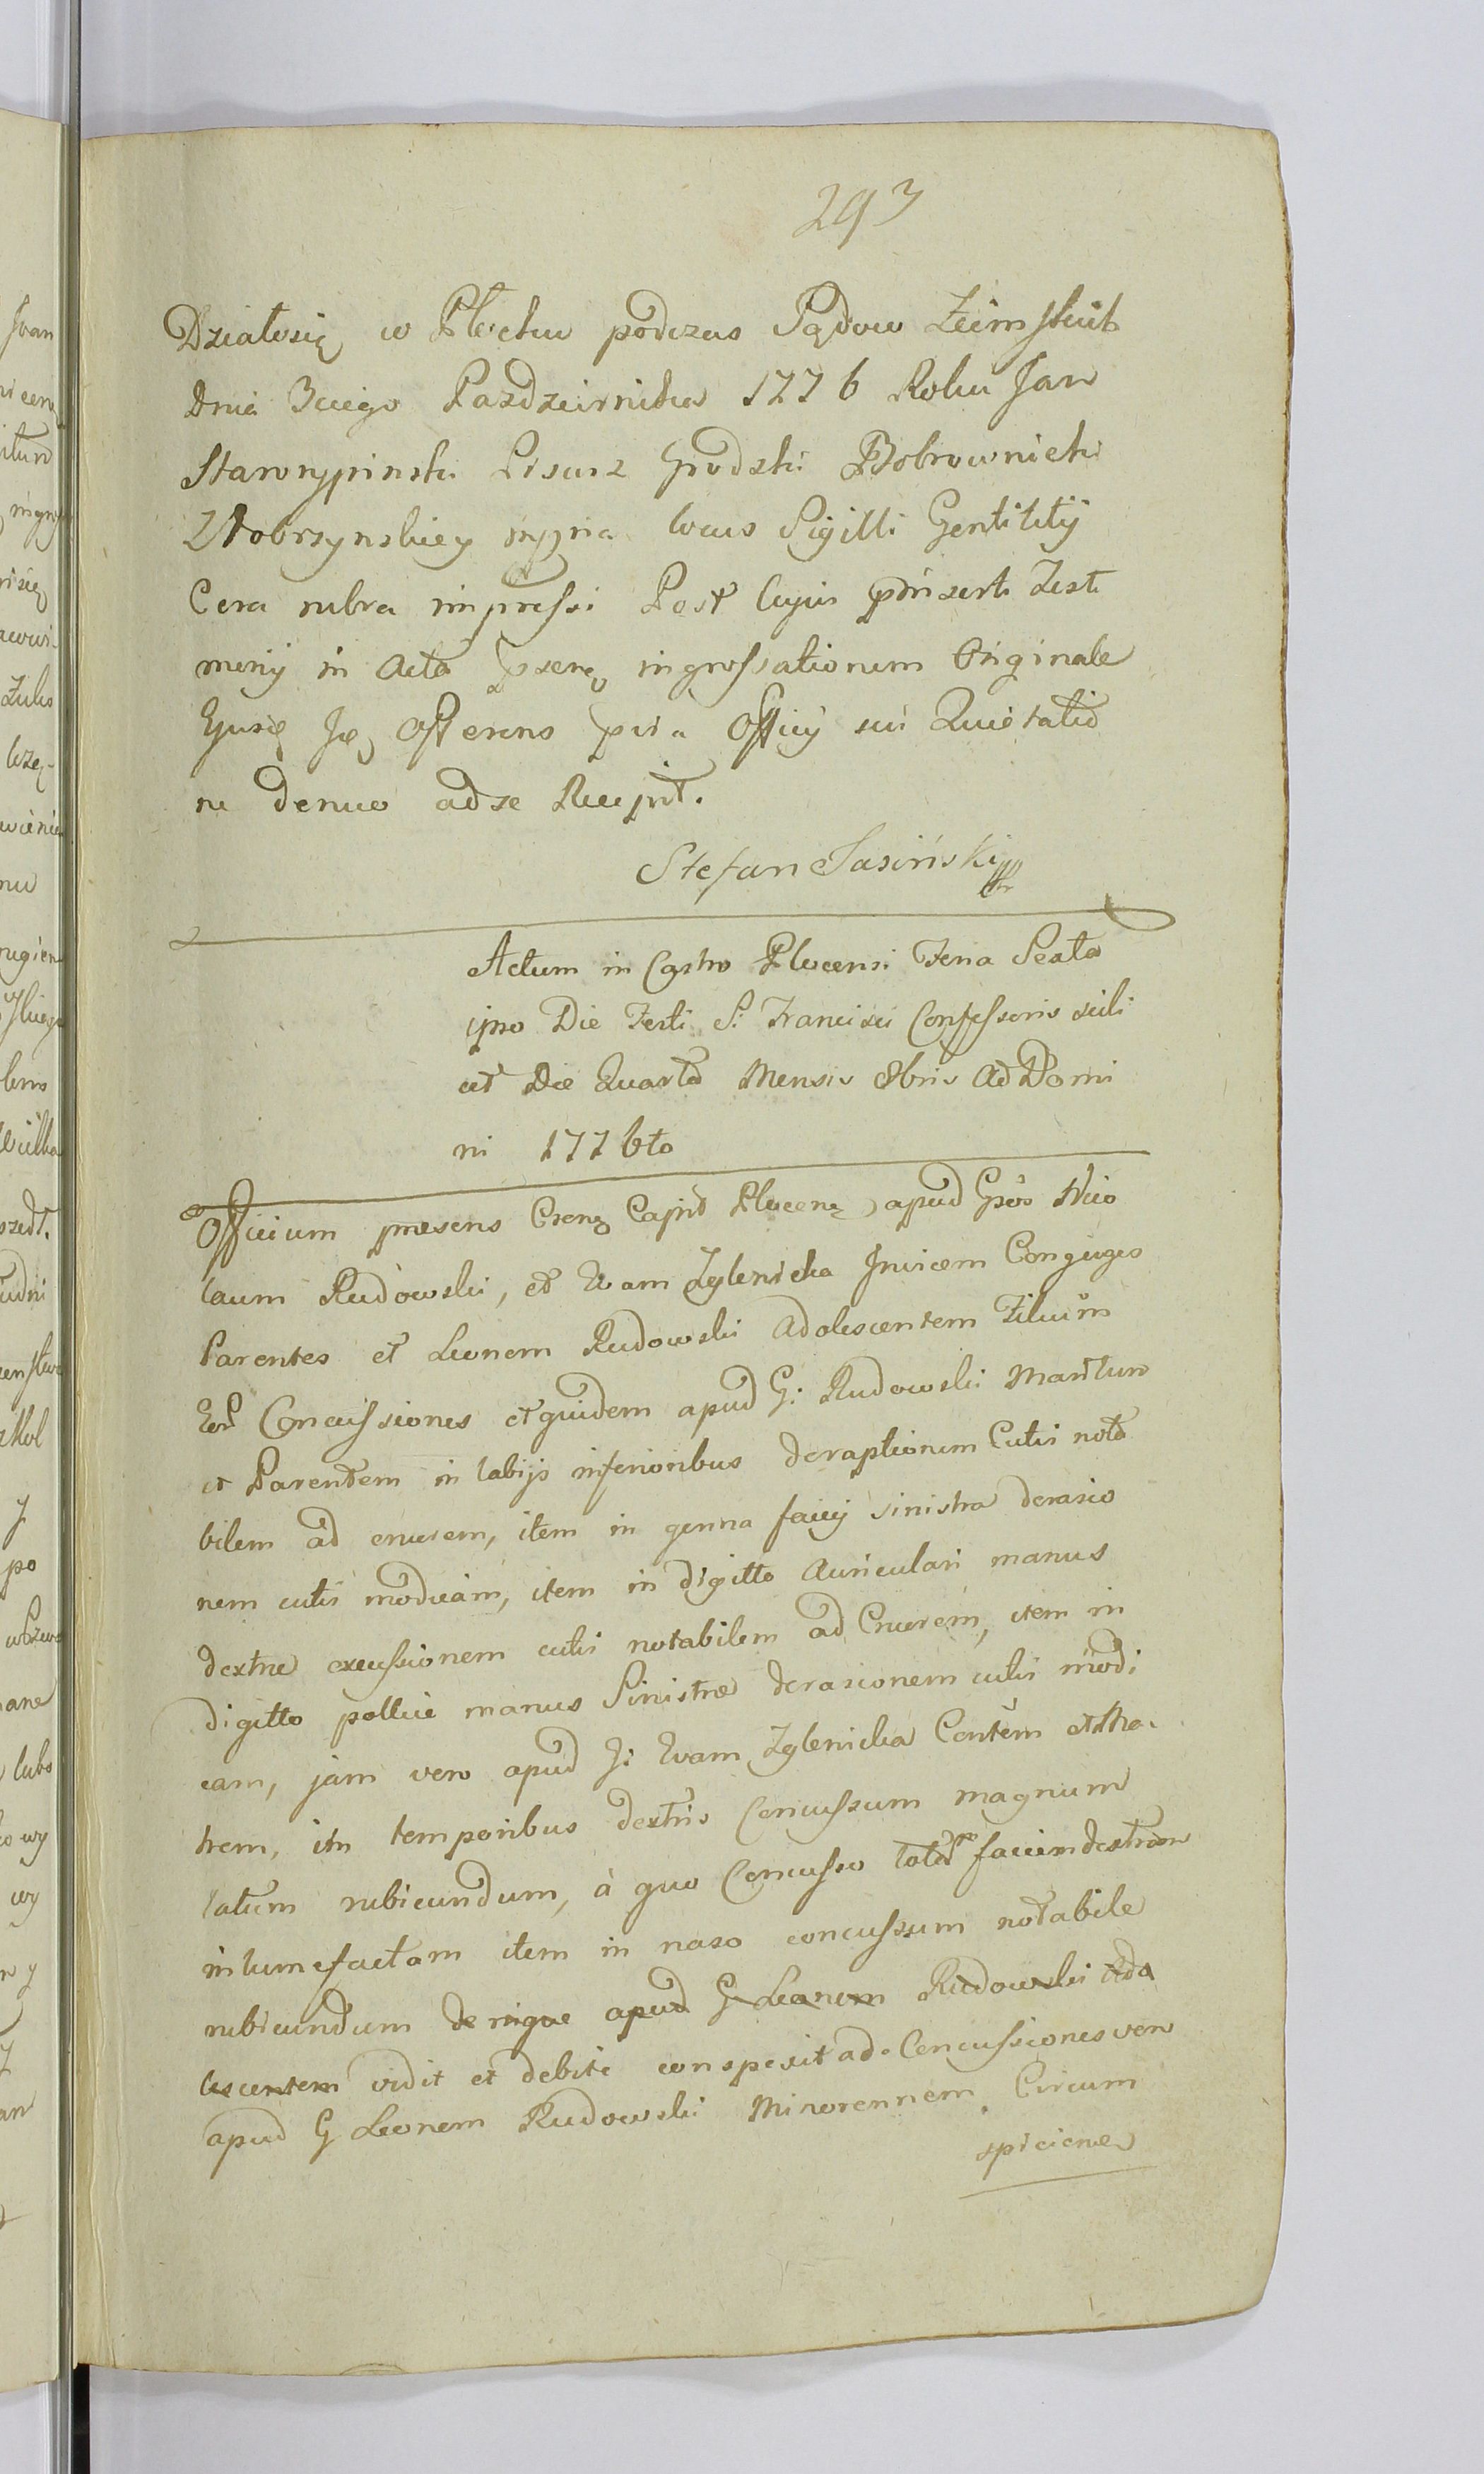 293
Działosię w Płocku podczas Sądow Zeimskich
Dnia 3ciego Pazdzeirnika 1776 Roku Jan
Starorypinski Pisarz Grodzki Bobrownicki
Z Dobrzynskiey mppria locus Sigilli Gentilitij
Cera rubra impressi Post cujus pninserti Testi
monij in Acta pseną ingrossationem Originale
Jdę Offerens pria Officij sui Quietatio
ne denuo ad se Recepit.
Stefan Jasiński
Actum in Castro Plocensi Feria Sexta
ipso Die Festi S: Francisci Confessoris scili
cet Die Quarta Mensis 8bris AD Domi
ni 1776to
Officium praesens Cseną Capit Plocenę apud Gsos Nico
laum Rudowski, et Evam Zglenicka Jnvicem Conjuges
Parentes et Leonem Rudowski Adolescentem Filium
Eor Concussiones et quidem apud G: Rudowski Maritum
et Parentem in labijs inferioribus deraptionem Cutis nota
bilem ad cruorem, item in genna faciej sinistra derasio
nem cutis modicam, item in digitto Auriculari manus
dextrae excussionem cutis notabilem ad Cruorem, item in
digitto pollice manus Sinistrae derasionem cutis modi
cam, jam vero apud G: Evam Zglenicka Contem et Ma
trem, in temporibus dextris Concussum magnum
latum rubicundum, à quo Concusso totam faciem dextram
intumefactam item in naso concussum notabile
rubicundum denique apud G Leonem Rudowski Ado
lescentem vidit et debite conspexit ad Concussiones vero
apud G Leonem Rudowski Minorennem Circum
spiciene